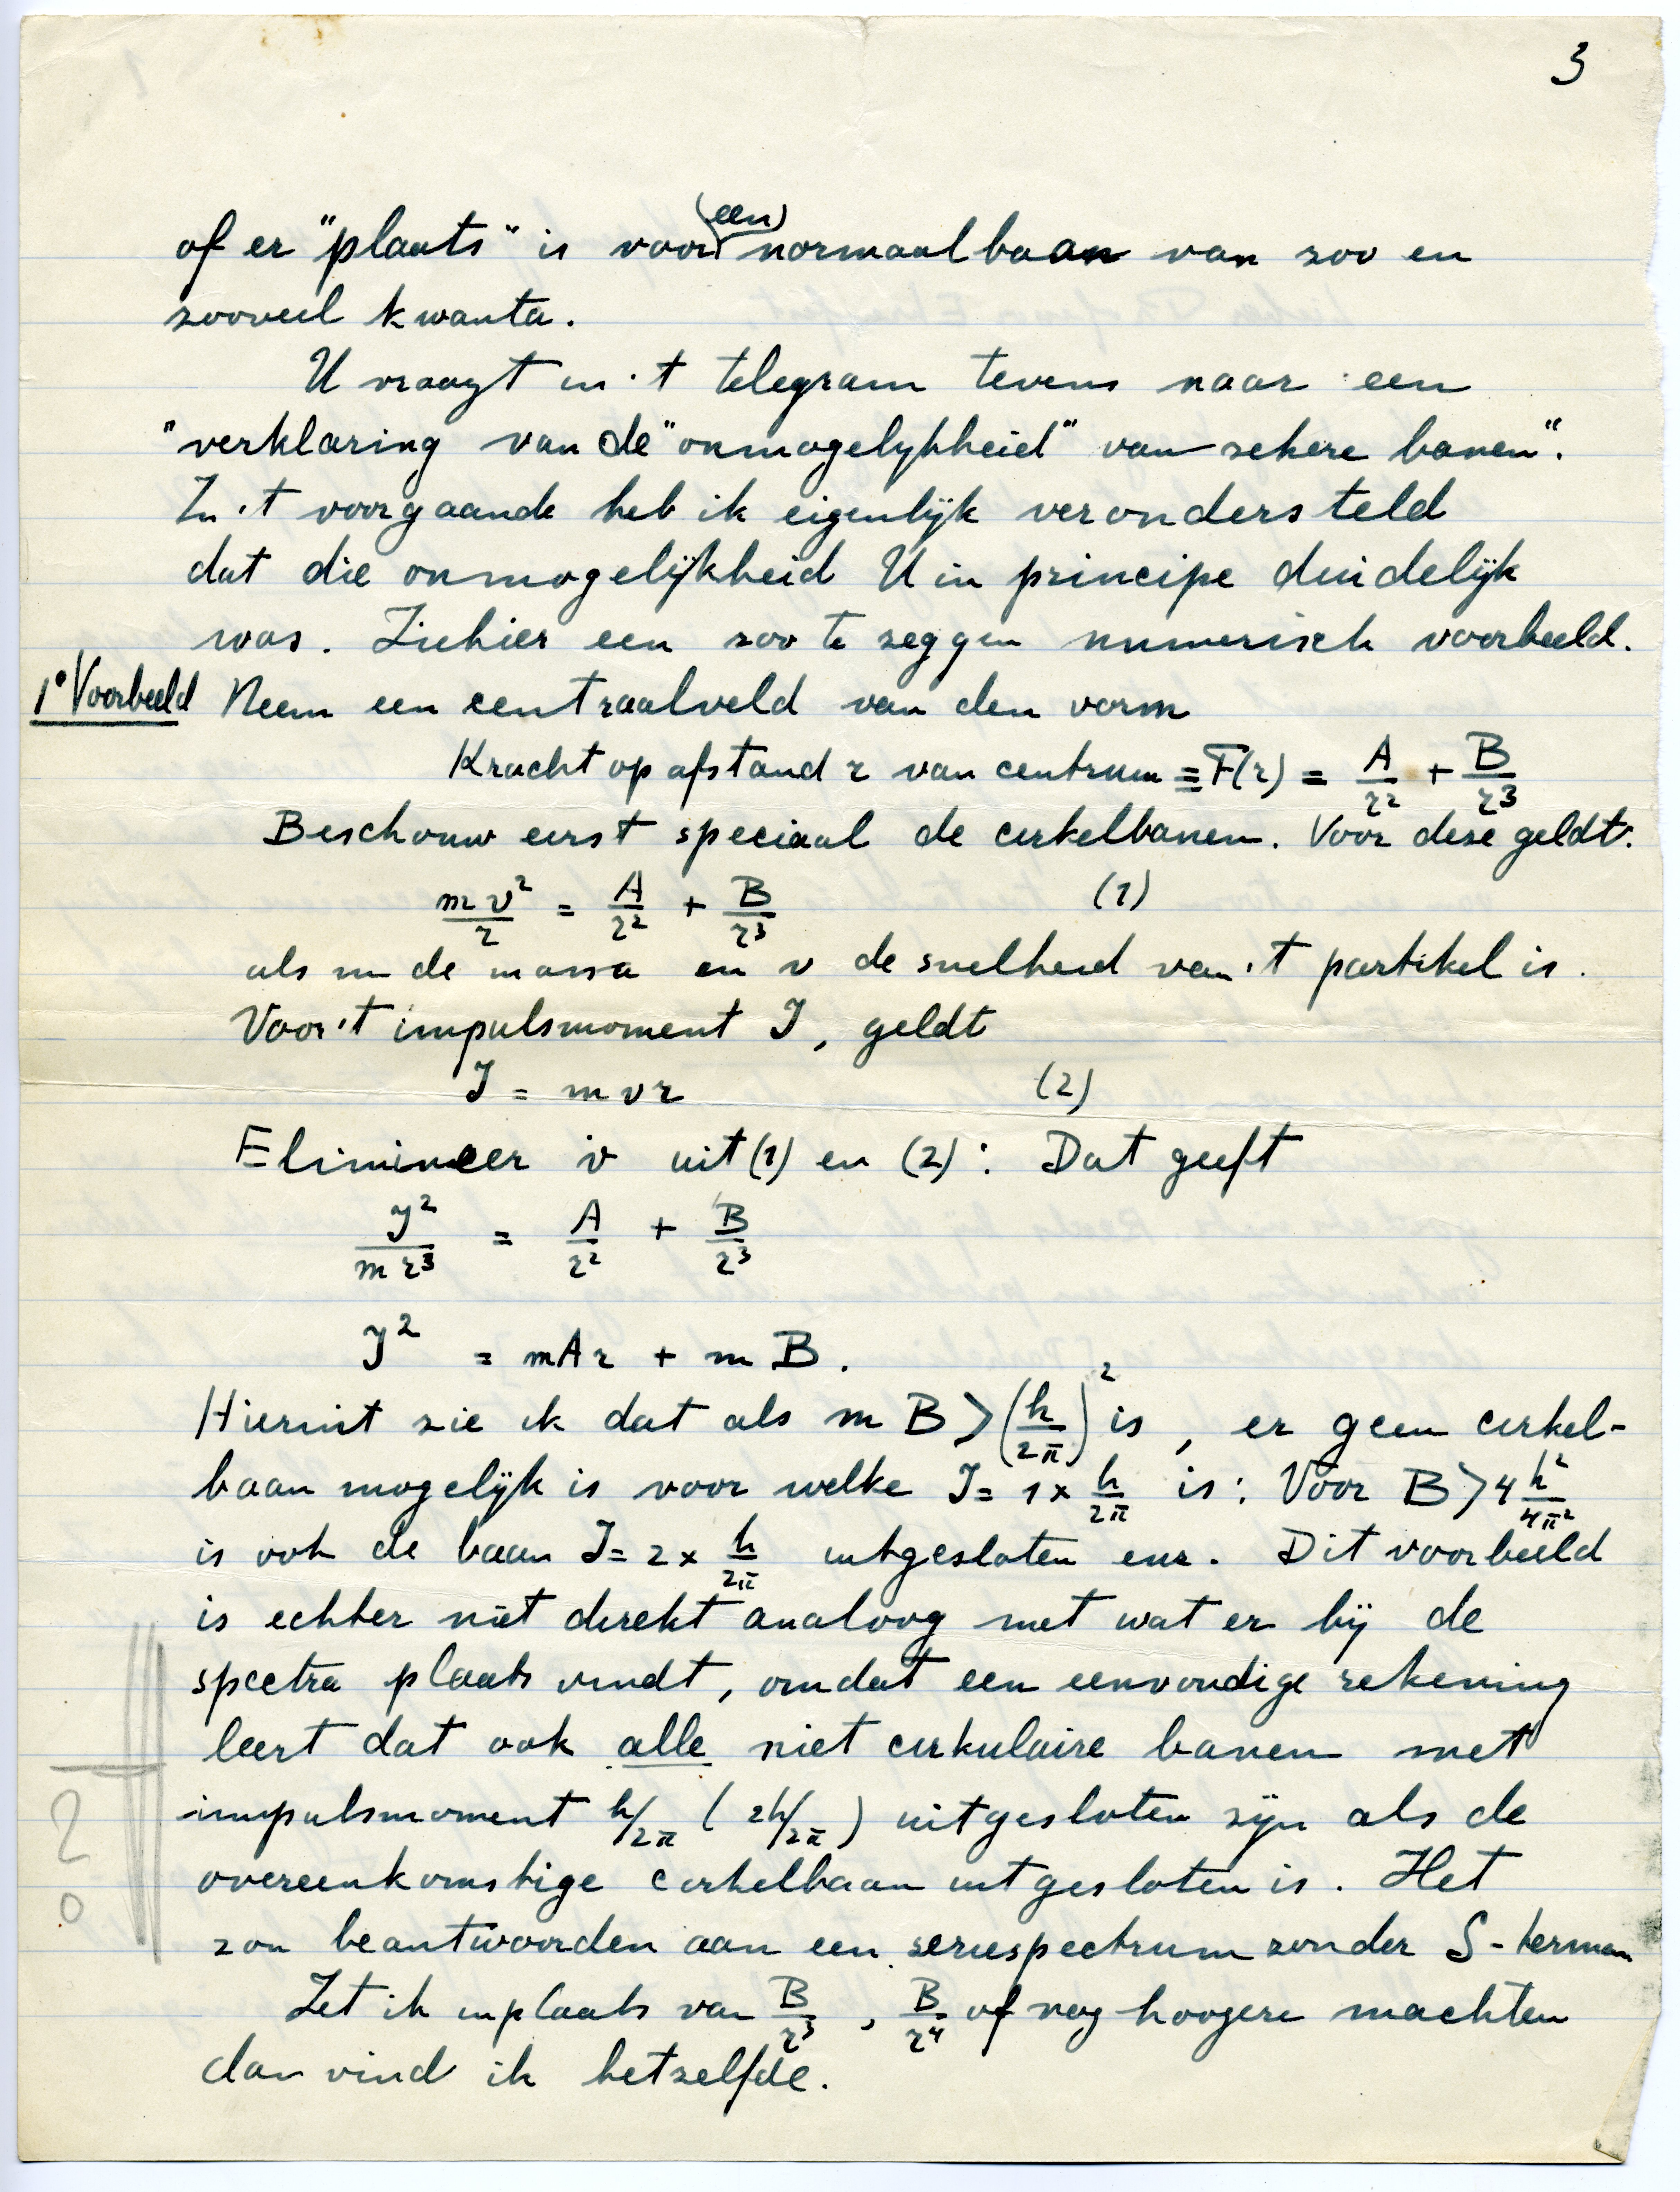 3
of er "plaats" is voor (een) normaalbaan van zoo en
zooveel kwanta.
U vraagt in 't telegram tevens naar een
"verklaring van de "onmogelijkheid" van zekere banen".
In 't voorgaande heb ik eigenlijk verondersteld
dat die onmogelijkheid U in principe duidelijk
was. Ziehier een zoo te zeggen numerisch voorbeeld.
1° Voorbeeld Neem een centraalveld van den vorm
Kracht op afstand r van centrum ≡ F(r) = A/r² + B/r³
Beschouw eerst speciaal de cirkelbanen. Voor deze geldt:
mv²/r = A/r² + B/r³ (1)
als m de massa en v de snelheid van 't partikel is.
Voor 't impulsmoment J, geldt
J = mvr (2)
Elimineer v uit (1) en (2): Dat geeft
J²/mr³ = A/r² + B/r³
J² = mAr + mB.
Hieruit zie ik dat als mB > (h/2π)² is, er geen cirkel-
baan mogelijk is voor welke J = 1 × h/2π is: Voor B > 4 h²/4π²
is ook de baan J = 2 × h/2π uitgesloten enz. Dit voorbeeld
is echter niet direkt analoog met wat er bij de
spectra plaats vindt, omdat een eenvoudige rekening
leert dat ook alle niet cirkulaire banen met
impulsmoment h/2π (2h/2π) uitgesloten zijn als de
overeenkomstige cirkelbaan uitgesloten is. Het
zou beantwoorden aan een seriespectrum zonder S-termen
Zet ik inplaats van B/r³, B/r⁴ of nog hoogere machten
dan vind ik hetzelfde.
?